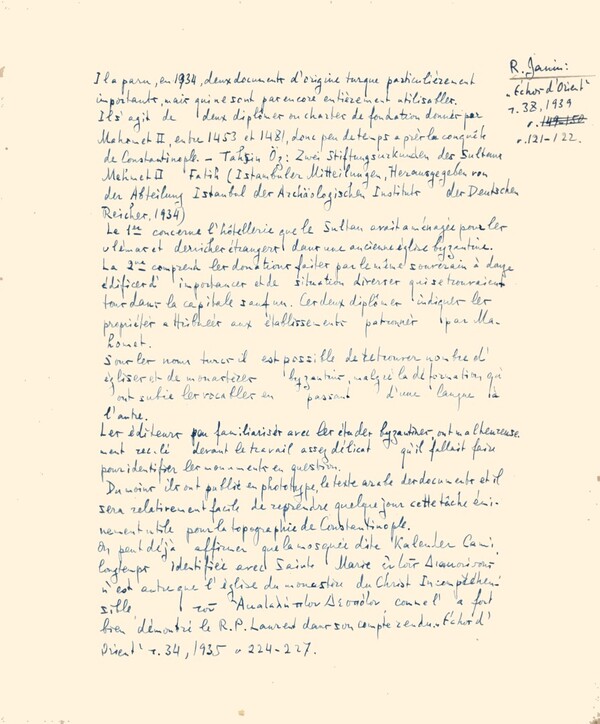 R. Janin:
"Échos d'Orient"
т. 38, 1939
p. 149-150
p. 121-122.
Il a paru, en 1934, deux documents d'origine turque particulièrement
importants, mais qui ne sont pas encore entièrement utilisables.
Il s'agit de deux diplômes ou chartes de fondation donnés par
Mahomet II, entre 1453 et 1481, donc peu de temps après la conquête
de Constantinople. – Tahsin Öz: Zwei Stiftungsurkunden des Sultans
Mehmet II Fatih (Istanbuler Mitteilungen, Herausgegeben von
der Abteilung Istanbul des Archäologischen Instituts der Deutschen
Reiches, 1934)
Le 1er concerne l'hôtellerie que le Sultan avait aménagée pour les
ulémas et derviches étrangers dans une ancienne église byzantine.
La 2me comprend les donations faites par le même souverain à
édifices d' importances et de situation diverses qui se trouvaient
tous dans la capitale sauf un. Ces deux diplômes indiquent les
propriétés attribuées aux établissements patronnés par Ma-
homet.
Sous les noms turcs il est possible de retrouver nombre d'
églises et de monastères byzantins, malgré la déformation qu'
ont subie les vocables en passant d'une langue à
l'autre.
Les éditeurs peu familiarisés avec les études byzantines, ont malheureuse
ment reculé devant le travail assez délicat qu'il fallait faire
pour identifier les monuments en question.
Du moins ils ont publié en phototype, le texte arabe des documents et il
sera relativement facile de reprendre quelque jour cette tâche émi-
nement utile pour la topographie de Constantinople.
On peut déjà affirmer que la mosquée dite Kalender Cami,
longtemps identifiée avec Sainte Marie ἐν τοῖς Διακονίσσης
n'est autre que l'église du monastère du Christ Incompréhen
sible τοῦ Ἀκαταλήπτου Δεσπότου, comme l' a fort
bien démontré le R.P. Laurent dans son compte rendu. "Échos d'
Orient" т. 34, 1935 p 224-227.